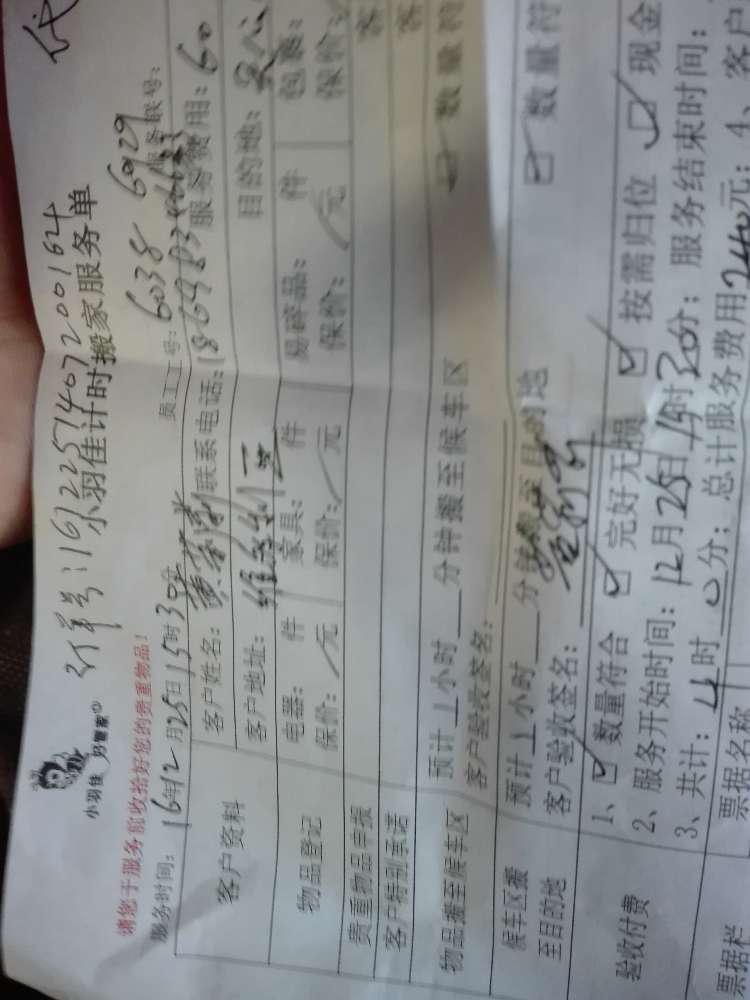 代
订单号:16122571407200164
小羽佳 好管家
小羽佳计时搬家服务单
请您于服务前收拾好您的贵重物品!
服务时间: 16年12月25日15时30 员工工号: 6038 6929 服务联号:
客户资料 客户姓名: 联系电话: 服务费用: 60
客户地址: 目的地:
物品登记 电器: 件 家具: 件 易碎品: 件 包裹:
保价: 元 保价: 元 保价: 元 保价:
贵重物品申报 客
客户特别承诺 客
物品搬至候车区 预计1小时 分钟搬至候车区 数量符
客户验收签名:
候车区搬至目的地 预计1小时 分钟搬至目的地 数量符
客户验收签名:
验收付费 1、 数量符合 完好无损 按需归位 现金
2、服务开始时间: 12月25日 时30分; 服务结束时间:
3、共计: 4时 0分; 总计服务费用 元; 4、客户
票据栏 票据名称